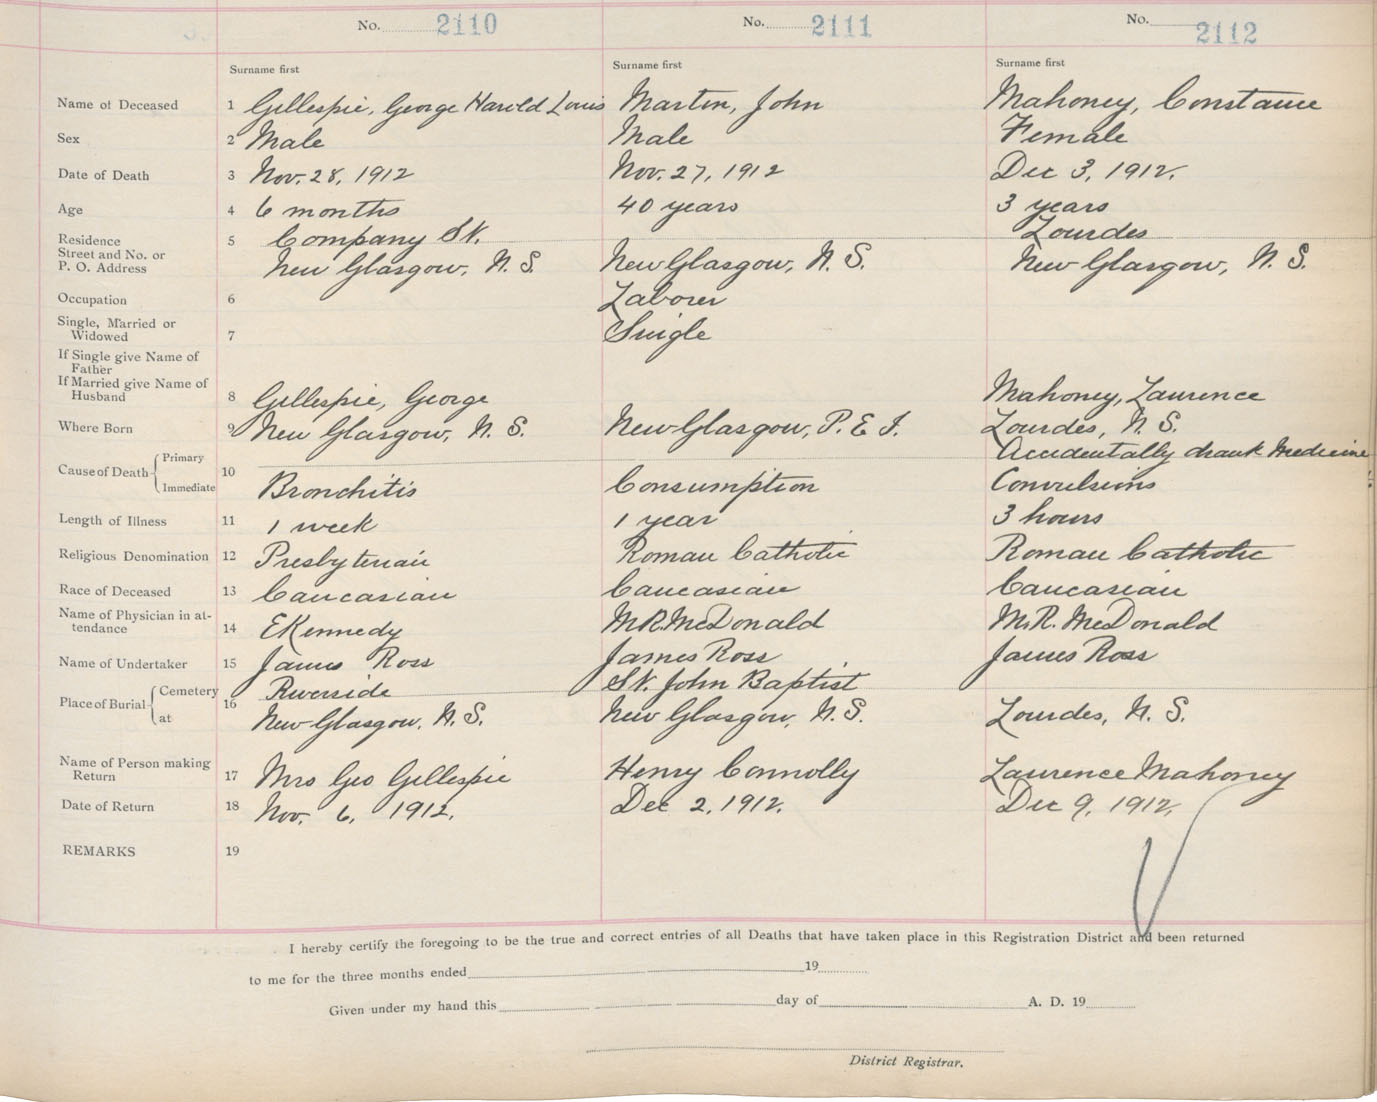 No. 2110 No. 2111 No. 2112
Surname first Surname first Surname first
Name of Deceased 1 Gillespie, George Harold Louis Martin, John Mahoney, Constance
Sex 2 Male Male Female
Date of Death 3 Nov. 28, 1912 Nov. 27, 1912 Dec 3, 1912.
Age 4 6 months 40 years 3 years
Residence 5 Company St. Lourdes
Street and No. or
P. O. Address New Glasgow, N. S. New Glasgow, N. S. New Glasgow, N. S.
Occupation 6 Laborer
Single, Married or
Widowed 7 Single
If Single give Name of
Father
If Married give Name of
Husband 8 Gillespie, George Mahoney, Laurence
Where Born 9 New Glasgow, N. S. New Glasgow, P. E I. Lourdes, N. S.
Cause of Death Primary 10 Accidentally drank Medicine
Immediate Bronchitis Consumption Convulsions
Length of Illness 11 1 week 1 year 3 hours
Religious Denomination 12 Presbyterian Roman Catholic Roman Catholic
Race of Deceased 13 Caucasian Caucasian Caucasian
Name of Physician in at-
tendance 14 E Kennedy M.R. McDonald M.R. McDonald
Name of Undertaker 15 James Ross James Ross James Ross
Place of Burial Cemetery 16 Riverside St. John Baptist
at New Glasgow, N. S. New Glasgow, N. S. Lourdes, N. S.
Name of Person making
Return 17 Mrs Geo Gillespie Henry Connolly Laurence Mahoney
Date of Return 18 Nov. 6, 1912. Dec 2, 1912. Dec 9, 1912.
REMARKS 19
I hereby certify the foregoing to be the true and correct entries of all Deaths that have taken place in this Registration District and been returned
to me for the three months ended 19
Given under my hand this day of A. D. 19
District Registrar.